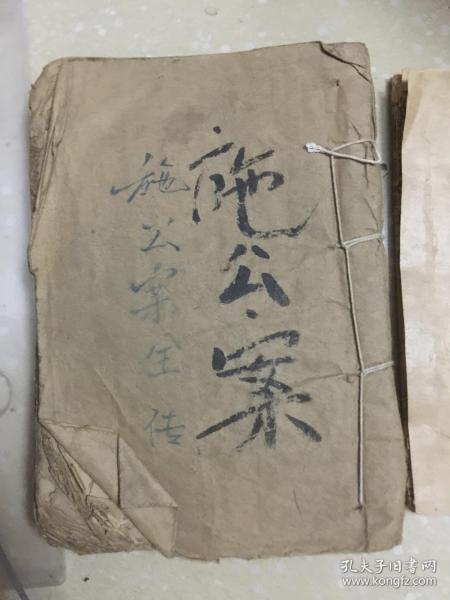 施公案
施公案全传
孔夫子旧书网
www.kongfz.com